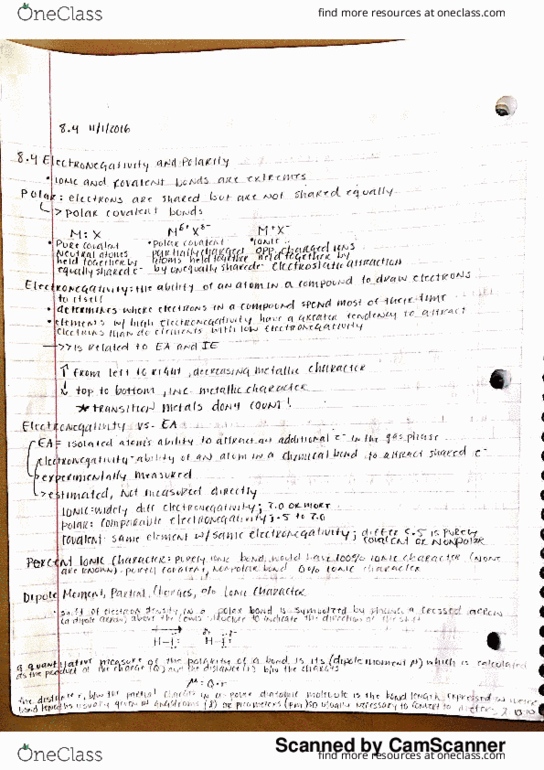 OneClass
find more resources at oneclass.com
8.4 11/1/2016
8.4 Electronegativity and Polarity
• Ionic and covalent bonds are extremes
Polar: electrons are shared but are not shared equally
↳ > polar covalent bonds
M:X M^δ+ X^δ- M⁺X⁻
• Pure covalent • Polar covalent • Ionic
neutral atoms partially charged opp. charged ions
held together by atoms held together held together by
equally shared e⁻ by unequally shared e⁻ electrostatic attraction
Electronegativity: the ability of an atom in a compound to draw electrons
to itself
• determines where electrons in a compound spend most of their time
• elements w/ high electronegativity have a greater tendency to attract
electrons than do elements with low electronegativity
→>> is related to EA and IE
↑ from left to right, decreasing metallic character
↓ top to bottom, inc. metallic character
★ transition metals don't count!
Electronegativity vs. EA
EA = isolated atom's ability to attract an additional e⁻ in the gas phase
electronegativity = ability of an atom in a chemical bond to attract shared e⁻
> experimentally measured
> estimated, not measured directly
Ionic: widely diff electronegativity; 2.0 or more
Polar: comparable electronegativity; .5 to 2.0
covalent: same element w/ same electronegativity; differ <.5 is purely
covalent or nonpolar
Percent Ionic Character: purely ionic bond would have 100% ionic character (none
are known). purely covalent, nonpolar bond 0% ionic character
Dipole Moment, Partial Charges, % Ionic Character
• shift of electron density in a polar bond is symbolized by showing a crossed arrow
(a dipole arrow) above the Lewis structure to indicate the direction of the shift
H-F: H-F:
a quantitative measure of the polarity of a bond is its (dipole moment μ) which is calculated
as the product of the charge (Q) and the distance (r) b/w the charges
μ = Q·r
the distance r, b/w the partial charges in a polar diatomic molecule is the bond length expressed in
bond length is usually given in angstroms (Å) or picometers (pm) so usually necessary to convert to meters
Scanned by CamScanner
OneClass
find more resources at oneclass.com